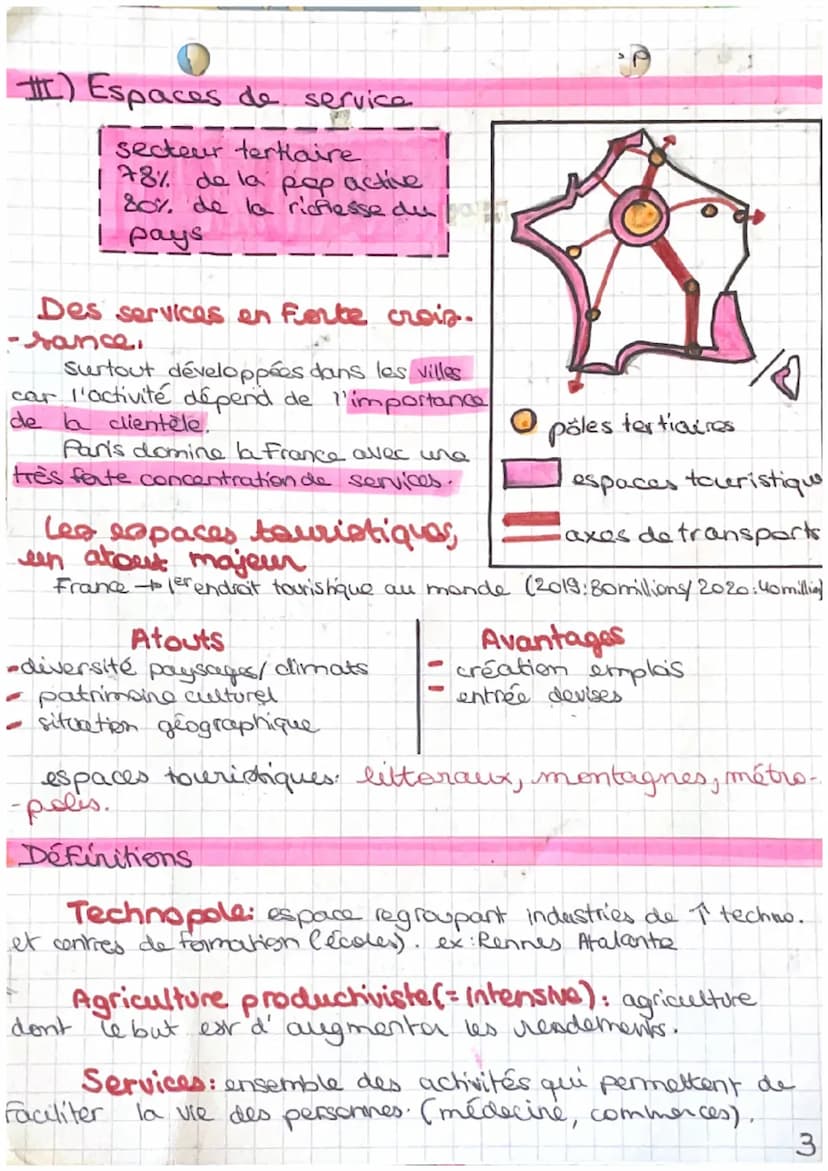 III) Espaces de service
secteur tertiaire
78% de la pop active
80% de la richesse du
pays
Des services en forte crois-
-sance.
Surtout développées dans les villes
car l'activité dépend de l'importance
de la clientèle.
Paris domine la France avec une
très forte concentration de services.
pôles tertiaires
espaces touristique
axes de transports
Les espaces touristiques,
un atout majeur
France → 1er endroit touristique au monde (2019:80millions/2020:40million)
Atouts
-diversité paysages/climats
- patrimoine culturel
- situation géographique
Avantages
- création emplois
- entrée devises
espaces touristiques: littoraux, montagnes, métro-
-poles.
Définitions
Technopole: espace regroupant industries de ↑ techno.
et centres de formation (écoles). ex: Rennes Atalante
Agriculture productiviste (= intensive): agriculture
dont le but est d'augmenter les rendements.
Services: ensemble des activités qui permettent de
faciliter la vie des personnes. (médecine, commerces).
3